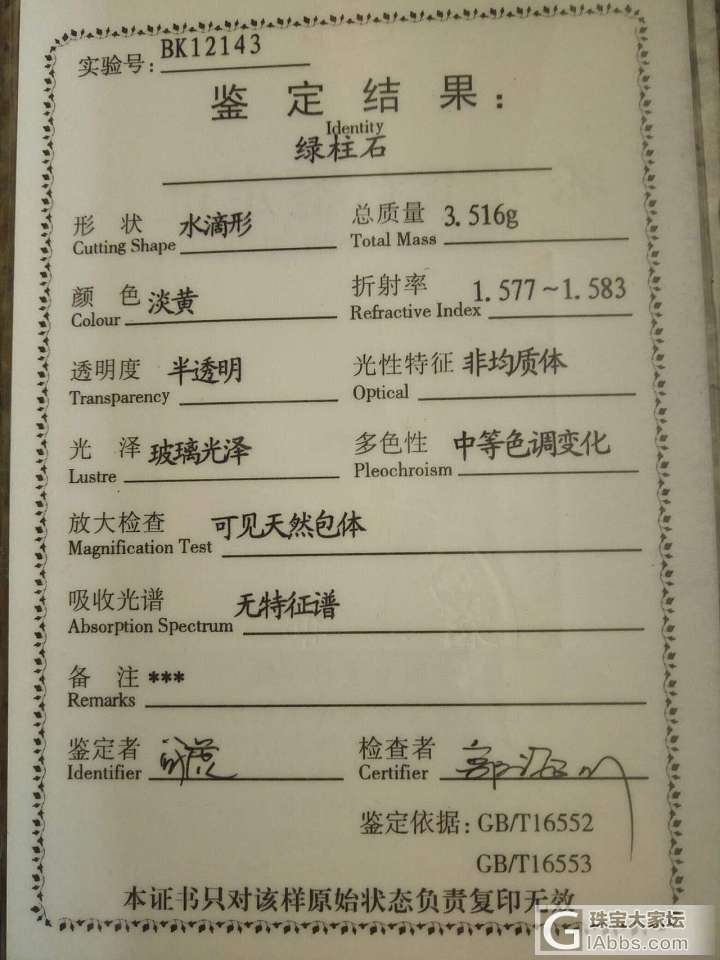 实验号: BK12143
鉴定结果:
Identity
绿柱石
形状 水滴形 总质量 3.516g
Cutting Shape Total Mass
颜色 淡黄 折射率 1.577~1.583
Colour Refractive Index
透明度 半透明 光性特征 非均质体
Transparency Optical
光泽 玻璃光泽 多色性 中等色调变化
Lustre Pleochroism
放大检查 可见天然包体
Magnification Test
吸收光谱 无特征谱
Absorption Spectrum
备注 ***
Remarks
鉴定者 检查者
Identifier Certifier
鉴定依据: GB/T16552
GB/T16553
本证书只对该样原始状态负责复印无效
G 珠宝大家坛
GIAbbs.com